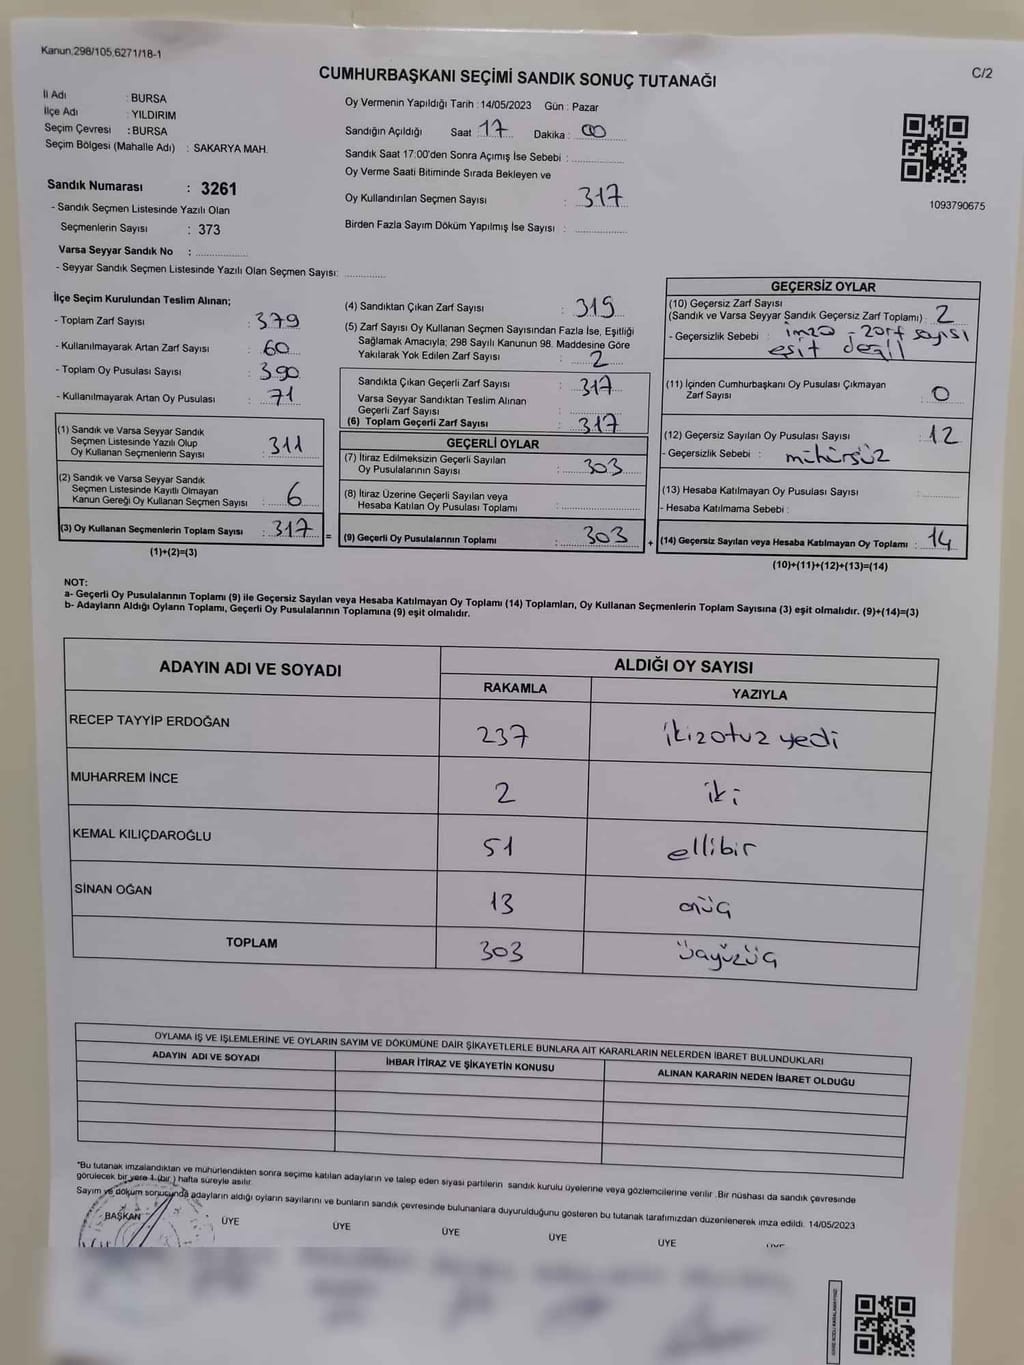 Kanun.298/105,6271/18-1
C/2
CUMHURBAŞKANI SEÇİMİ SANDIK SONUÇ TUTANAĞI
İl Adı : BURSA
İlçe Adı : YILDIRIM
Seçim Çevresi : BURSA
Seçim Bölgesi (Mahalle Adı) : SAKARYA MAH.
Sandık Numarası : 3261
- Sandık Seçmen Listesinde Yazılı Olan
Seçmenlerin Sayısı : 373
Varsa Seyyar Sandık No :
- Seyyar Sandık Seçmen Listesinde Yazılı Olan Seçmen Sayısı:
Oy Vermenin Yapıldığı Tarih : 14/05/2023 Gün : Pazar
Sandığın Açıldığı Saat 17 Dakika : 00
Sandık Saat 17:00'den Sonra Açımış İse Sebebi :
Oy Verme Saati Bitiminde Sırada Bekleyen ve
Oy Kullandırılan Seçmen Sayısı : 317
Birden Fazla Sayım Döküm Yapılmış İse Sayısı :
1093790675
İlçe Seçim Kurulundan Teslim Alınan;
- Toplam Zarf Sayısı : 379
- Kullanılmayarak Artan Zarf Sayısı : 60
- Toplam Oy Pusulası Sayısı : 390
- Kullanılmayarak Artan Oy Pusulası : 71
(1) Sandık ve Varsa Seyyar Sandık
Seçmen Listesinde Yazılı Olup
Oy Kullanan Seçmenlerin Sayısı : 311
(2) Sandık ve Varsa Seyyar Sandık
Seçmen Listesinde Kayıtlı Olmayan
Kanun Gereği Oy Kullanan Seçmen Sayısı : 6
(3) Oy Kullanan Seçmenlerin Toplam Sayısı : 317 =
(1)+(2)=(3)
(4) Sandıktan Çıkan Zarf Sayısı : 319
(5) Zarf Sayısı Oy Kullanan Seçmen Sayısından Fazla İse, Eşitliği
Sağlamak Amacıyla; 298 Sayılı Kanunun 98. Maddesine Göre
Yakılarak Yok Edilen Zarf Sayısı : 2
Sandıkta Çıkan Geçerli Zarf Sayısı : 317
Varsa Seyyar Sandıktan Teslim Alınan
Geçerli Zarf Sayısı :
(6) Toplam Geçerli Zarf Sayısı : 317
GEÇERLİ OYLAR
(7) İtiraz Edilmeksizin Geçerli Sayılan
Oy Pusulalarının Sayısı : 303
(8) İtiraz Üzerine Geçerli Sayılan veya
Hesaba Katılan Oy Pusulası Toplamı :
(9) Geçerli Oy Pusulalarının Toplamı : 303 +
GEÇERSİZ OYLAR
(10) Geçersiz Zarf Sayısı
(Sandık ve Varsa Seyyar Sandık Geçersiz Zarf Toplamı) : 2
- Geçersizlik Sebebi : imza - zarf sayısı
eşit değil
(11) İçinden Cumhurbaşkanı Oy Pusulası Çıkmayan
Zarf Sayısı : 0
(12) Geçersiz Sayılan Oy Pusulası Sayısı : 12
- Geçersizlik Sebebi : mühürsüz
(13) Hesaba Katılmayan Oy Pusulası Sayısı :
- Hesaba Katılmama Sebebi :
(14) Geçersiz Sayılan veya Hesaba Katılmayan Oy Toplamı : 14
(10)+(11)+(12)+(13)=(14)
NOT:
a- Geçerli Oy Pusulalarının Toplamı (9) ile Geçersiz Sayılan veya Hesaba Katılmayan Oy Toplamı (14) Toplamları, Oy Kullanan Seçmenlerin Toplam Sayısına (3) eşit olmalıdır. (9)+(14)=(3)
b- Adayların Aldığı Oyların Toplamı, Geçerli Oy Pusulalarının Toplamına (9) eşit olmalıdır.
ADAYIN ADI VE SOYADI ALDIĞI OY SAYISI
RAKAMLA YAZIYLA
RECEP TAYYİP ERDOĞAN 237 ikizotuz yedi
MUHARREM İNCE 2 iki
KEMAL KILIÇDAROĞLU 51 ellibir
SİNAN OĞAN 13 onüç
TOPLAM 303 üçyüzüç
OYLAMA İŞ VE İŞLEMLERİNE VE OYLARIN SAYIM VE DÖKÜMÜNE DAİR ŞİKAYETLERLE BUNLARA AİT KARARLARIN NELERDEN İBARET BULUNDUKLARI
ADAYIN ADI VE SOYADI İHBAR İTİRAZ VE ŞİKAYETİN KONUSU ALINAN KARARIN NEDEN İBARET OLDUĞU
*Bu tutanak imzalandıktan ve mühürlendikten sonra seçime katılan adayların ve talep eden siyasi partilerin sandık kurulu üyelerine veya gözlemcilerine verilir .Bir nüshası da sandık çevresinde
görülecek bir yere 1 (bir ) hafta süreyle asılır.
Sayım ve döküm sonucunda adayların aldığı oyların sayılarını ve bunların sandık çevresinde bulunanlara duyurulduğunu gösteren bu tutanak tarafımızdan düzenlenerek imza edildi. 14/05/2023
BAŞKAN ÜYE ÜYE ÜYE ÜYE ÜYE